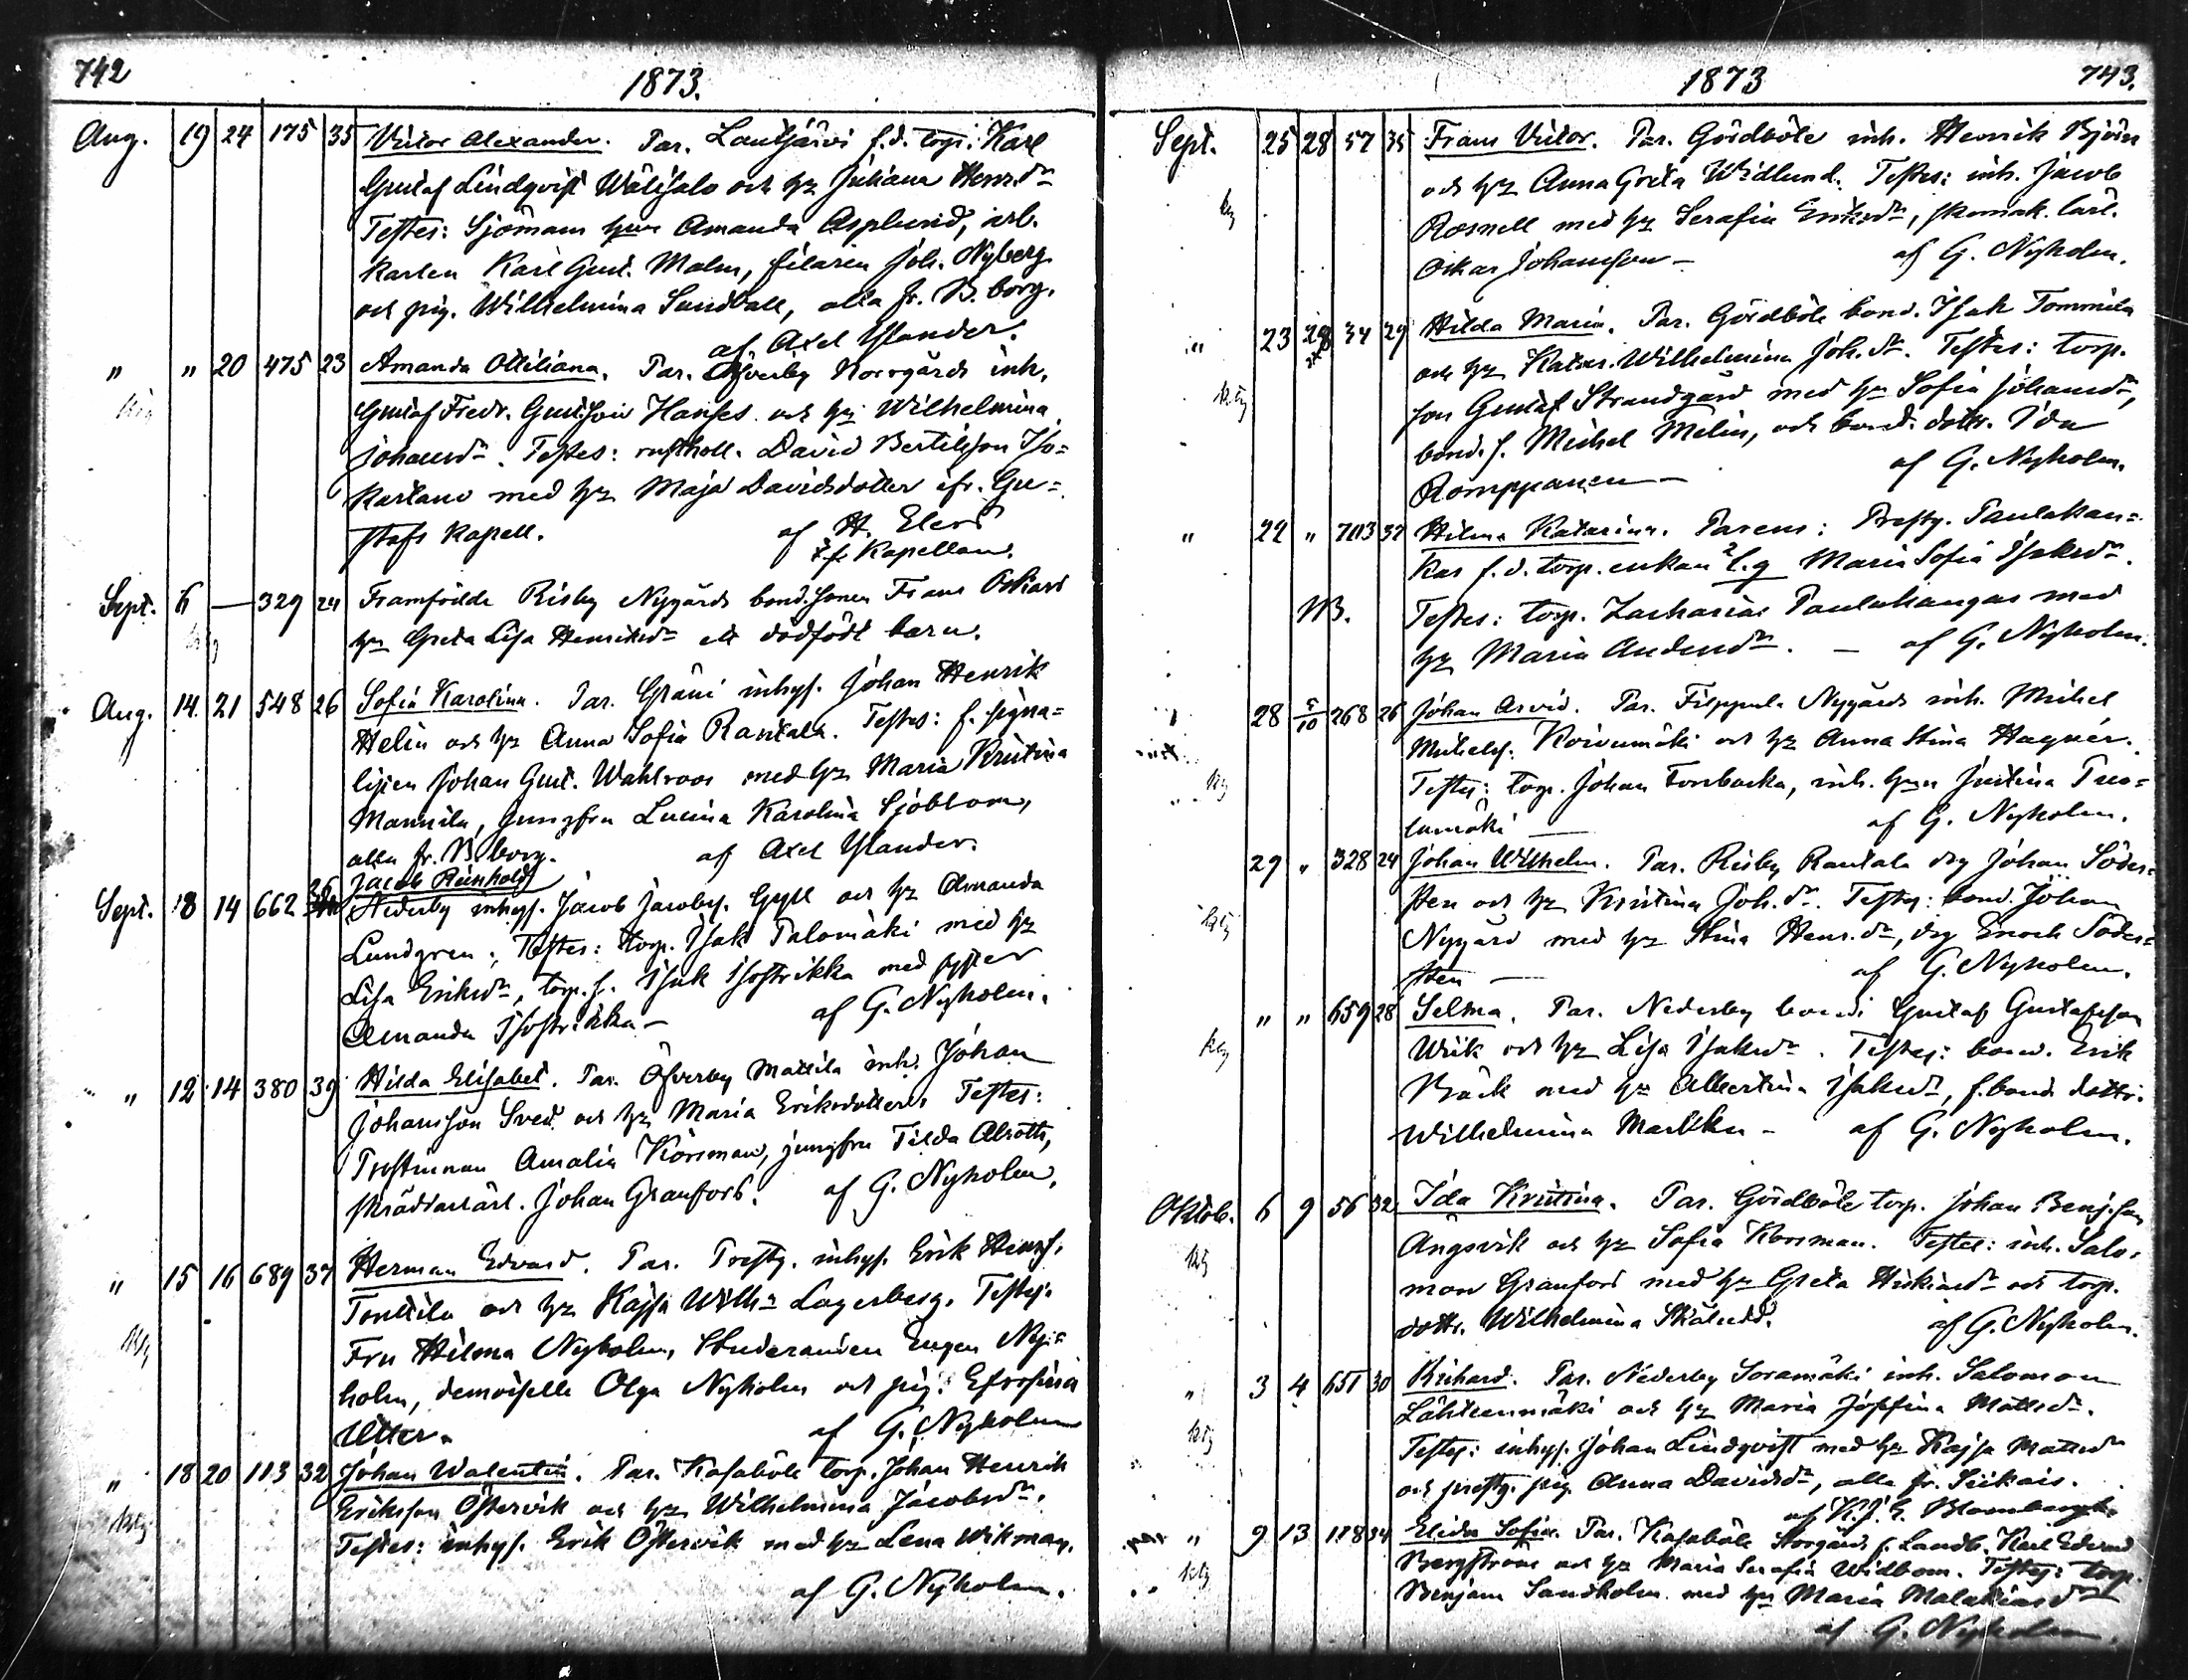 742
1873.
Aug. 19 24 175 35 Victor Alexander. Par. Lautjärvi f.d. torp. Karl
Gustaf Lindqvist Wälisalo och hu Juliana Henr.dr
Testes: Sjömans hun Amanda Asplund, arb.
karlen Karl Gust. Malm, filaren Joh. Nyberg
och pig. Wilhelmina Sundvall, alla fr. B.borg.
af Axel Ylander.
" " 20 475 23 Amanda Ottiliana. Par. Öfverby Norrgårds inh.
Gustaf Fredr. Gustfson Hanses och hu Wilhelmina
Johansdr. Testes: rusth. David Bertilsson Iso-
kartano med hu Maja Davidsdotter ifr. Gu-
stafs kapell. af H. Elers
t.f. Kapellan.
Sept. 6 — 329 24 Framfödde Risby Nygårds bond.sonen Frans Oskars
hu Greta Lisa Henriksdr ett dödfödt barn.
Aug. 14. 21 548 26 Sofia Karolina. Par. Gräni inhys. Johan Henrik
Helin och hu Anna Sofia Rantala. Testes: f. signa-
listen Johan Gust. Wahlroos med hu Maria Kristina
Mannila, jungfru Lucina Karolina Sjöblom,
alla fr. B.borg. af Axel Ylander.
Jacob Reinhold
Sept. 8 14 662 26 Nederby inhys. Jacob Jacobs. Gyll och hu Amanda
Lundgren; Testes: torp. Isak Palomäki med hu
Lisa Eriksdr, torp.s. Isak Isostrikka med syster
Amanda Isostrikka — af G. Nyholm.
" 12 14 380 39 Hilda Elisabet. Par. Öfverby Mattila inh. Johan
Johansson Sved och hu Maria Eriksdotter Testes:
Prostinnan Amalia Körsman, jungfru Tilda Alroth,
skräddarlärl. Johan Granfors. af G. Nyholm.
" 15 16 689 37 Herman Edvard. Par. Prestg. inhys. Erik Henrs.
Tonttila och hu Kajsa Wilh:a Lagerberg. Testes:
Fru Hilma Nyholm, Studeranden Eugen Ny-
holm, demoiselle Olga Nyholm och pig. Efrosina
Utter. af G. Nyholm
" 18 20 113 32 Johan Walentin. Par. Kasaböle torp. Johan Henrik
Eriksson Östervik och hu Wilhelmina Jacobsdr.
Testes: inhys. Erik Östervik med hu Lena Wikman.
af G. Nyholm.
1873 743.
Sept. 25 28 57 35 Frans Victor. Par. Gördböle inh. Henrik Björn
och hu Anna Greta Widlund. Testes: inh. Jacob
Rosnell med hu Serafia Eriksdr, skomak. lärl.
Oskar Johansson — af G. Nyholm.
" 23 28 34 29 Hilda Maria. Par. Gördböle bond. Isak Tommila
och hu Katar. Wilhelmina Joh.dr. Testes: torp.
son Gustaf Strandgård med hu Sofia Johansdr,
bond.s. Michel Melin, och bond. dottr. Ida
Romppanen — af G. Nyholm.
" 22 " 703 37 Hilma Katarina. Parens: Prestg. Paulakan-
kas f.d. torp.enkan Maria Sofia Isaksdr.
NB. Testes: torp. Zacharias Paulakangas med
hu Maria Andersdr. — af G. Nyholm.
" 28 5/10 268 26 Johan Arvid. Par. Filppula Nygårds inh. Michel
Michels. Koivumäki och hu Anna Stina Hagner.
Testes: torp. Johan Forsbacka, inh. hun Justina Tuo-
lumäki — af G. Nyholm.
29 " 328 24 Johan Wilhelm. Par. Risby Rantala drg Johan Söder-
sten och hu Kristina Joh.dr. Testes: bond. Johan
Nygård med hu Stina Henr.dr, drg Enoch Söder-
sten — af G. Nyholm.
" " 659 28 Selma. Par. Nederby bond. Gustaf Gustafsson
Wiik och hu Lisa Isaksdr. Testes: bond. Erik
Bäck med hu Albertina Isaksdr, f. bond. dottr.
Wilhelmina Markku — af G. Nyholm.
Oktob. 6 9 56 32 Ida Kristina. Par. Gördböle torp. Johan Benj.son
Ängsvik och hu Sofia Korsman. Testes: inh. Salo-
mon Granfors med hu Greta Hiskiasdr och torp.
dottr. Wilhelmina Skålund. af G. Nyholm.
" 3 4 651 30 Richard. Par. Nederby Soramäki inh. Salomon
Lähteenmäki och hu Maria Josefina Mattsdr.
Testes: inhys. Johan Lindqvist med hu Kajsa Mattsdr
och prestg. pig. Anna Davidsdr, alla fr. Siikais.
af K.J.G. Blomberg
" 9 13 118 34 Elida Sofia. Par. Kasaböle Storgårds f. Landb. Karl Edvard
Bergström och hu Maria Serafia Widbom. Testes: torp.
Benjam Sandholm med hu Maria Malakiasdr
af G. Nyholm.